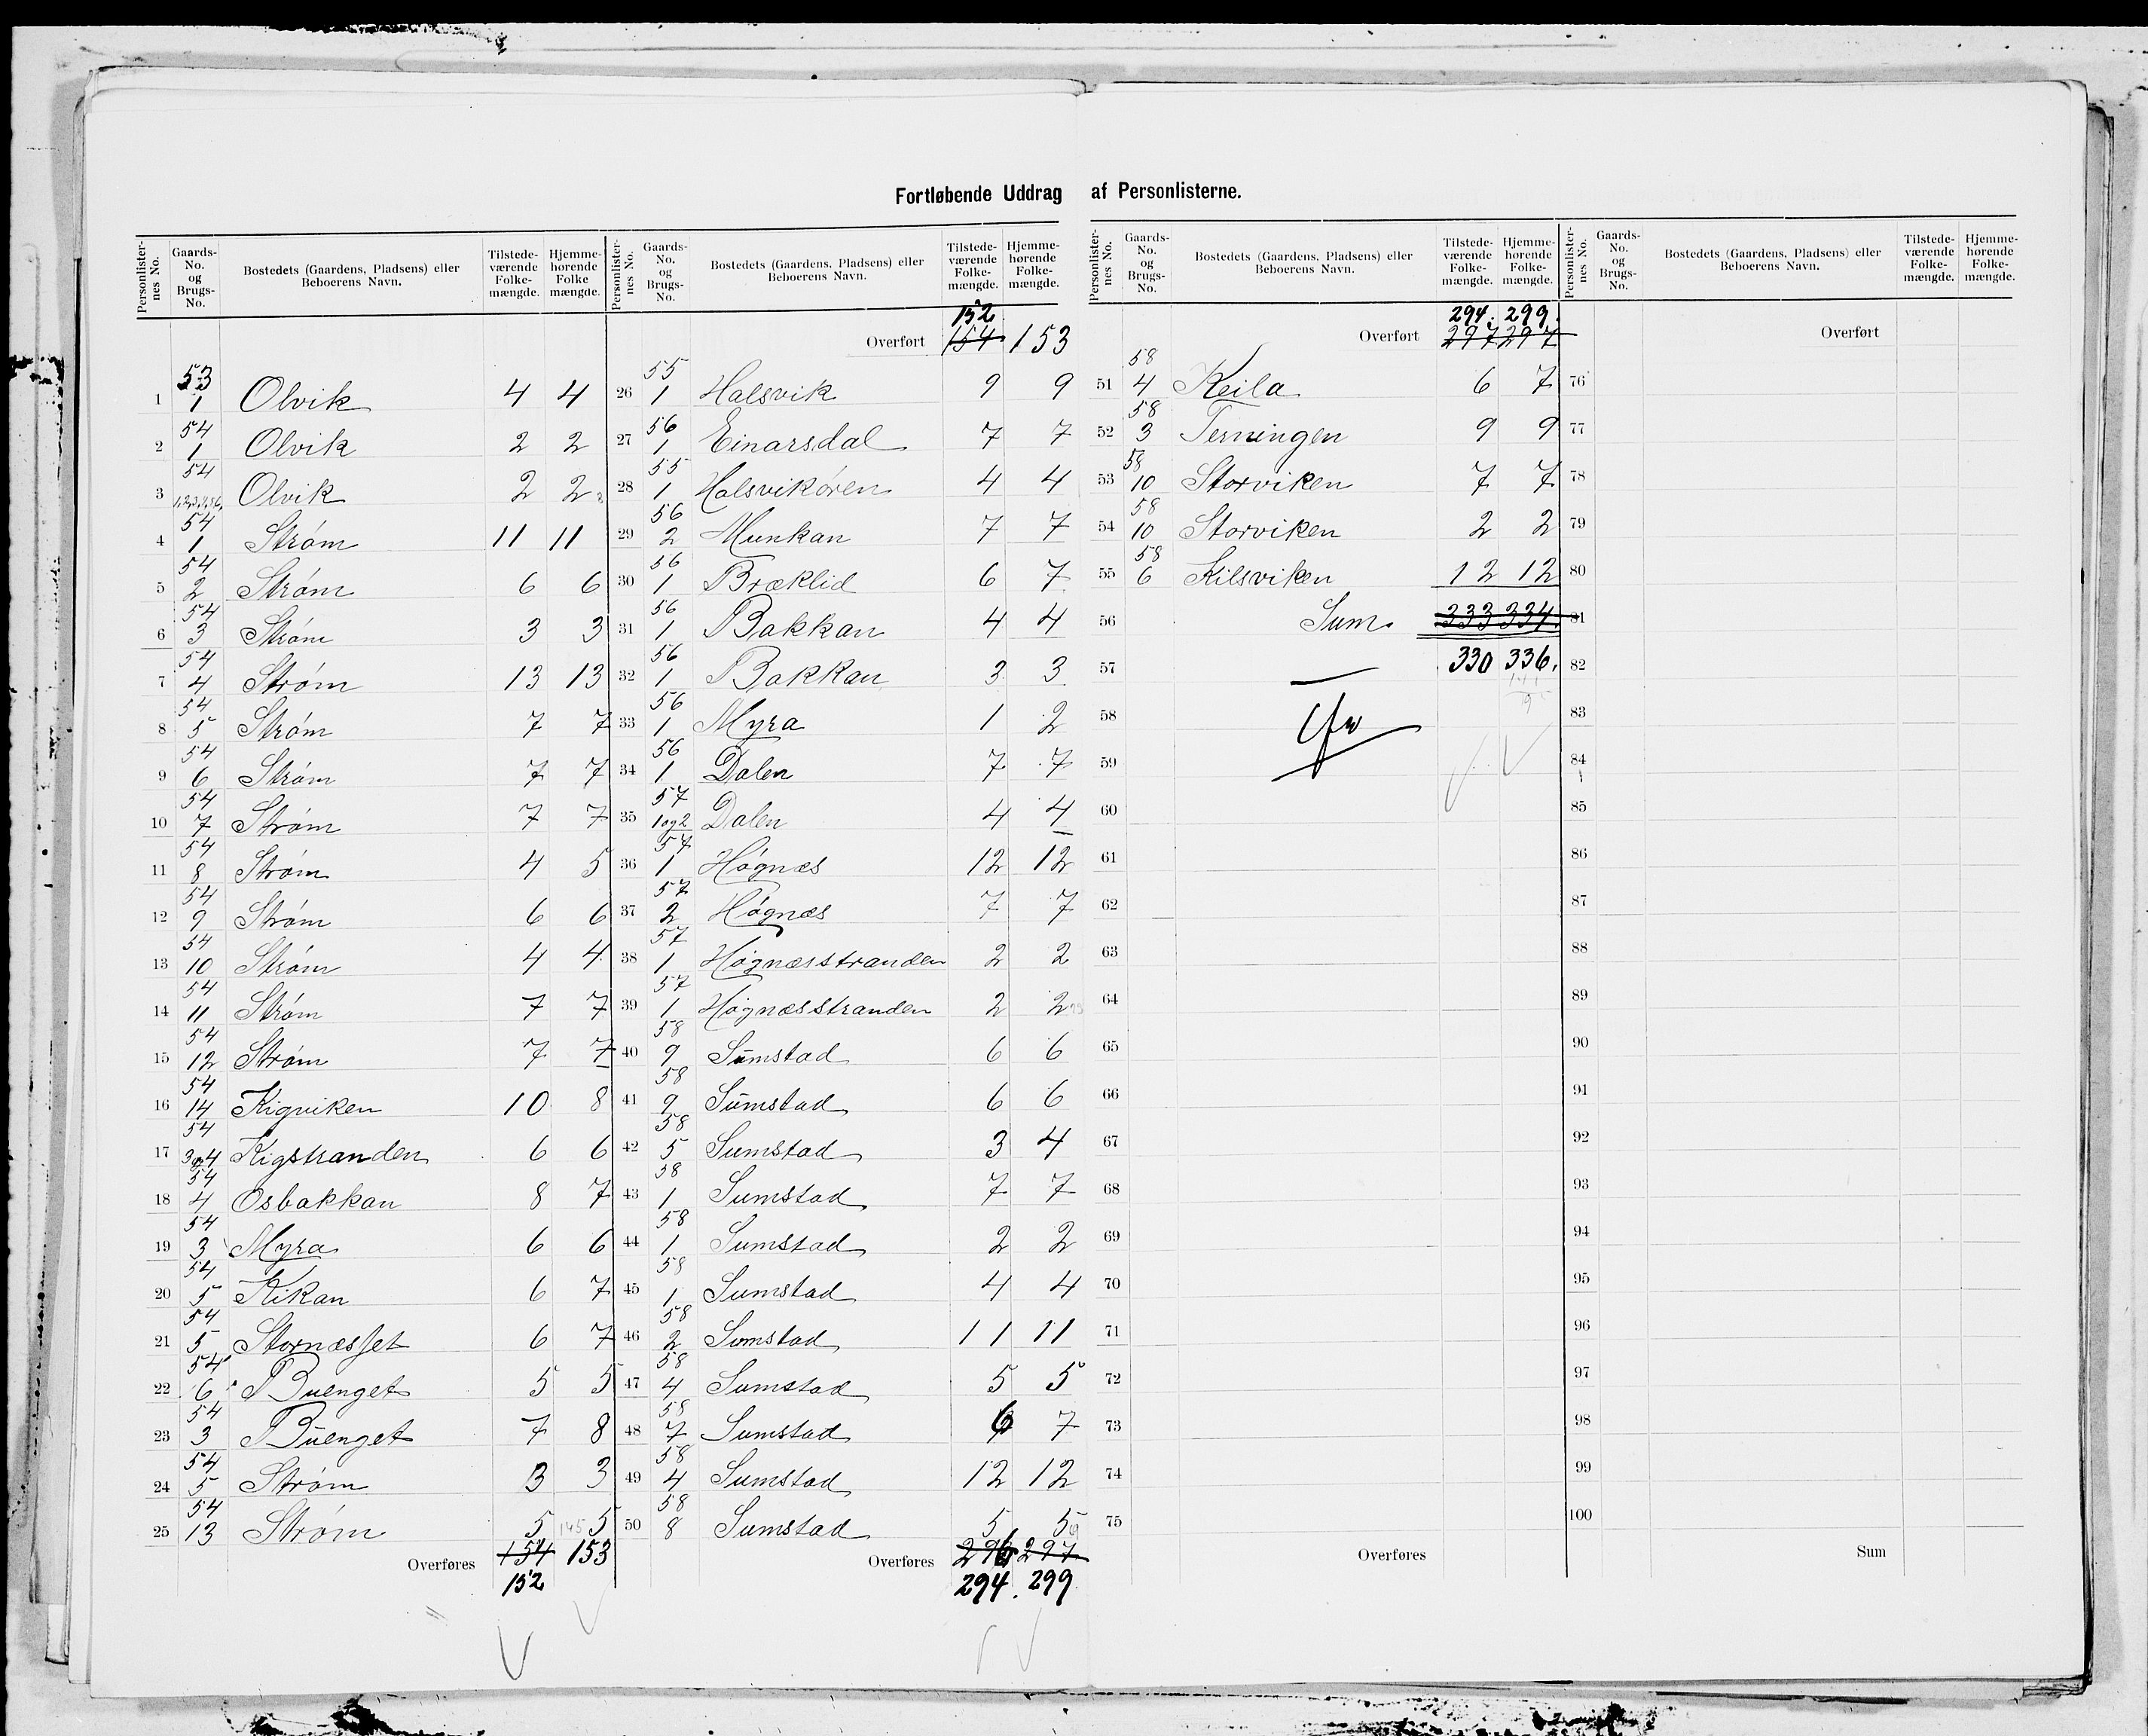 Fortløbende Uddrag af Personlisterne.
Personlisternes No. Gaards-No. og Brugs-No. Bostedets (Gaardens, Pladsens) eller Beboerens Navn. Tilstedeværende Folkemængde. Hjemmehørende Folkemængde.
1 53 1 Olvik 4 4
2 54 1 Olvik 2 2
3 54 Olvik 2 2
4 54 1 Strøm 11 11
5 54 2 Strøm 6 6
6 54 3 Strøm 3 3
7 54 4 Strøm 13 13
8 54 5 Strøm 7 7
9 54 6 Strøm 7 7
10 54 7 Strøm 7 7
11 54 8 Strøm 4 5
12 54 9 Strøm 6 6
13 54 10 Strøm 4 4
14 54 11 Strøm 7 7
15 54 12 Strøm 7 7
16 54 14 Kigviken 10 8
17 54 3og4 Kigstranden 6 6
18 54 4 Osbakkan 8 7
19 54 3 Myra 6 6
20 54 5 Kikan 6 7
21 54 5 Stornæsset 6 7
22 54 6 Buenget 5 5
23 54 3 Buenget 7 8
24 54 5 Strøm 3 3
25 54 13 Strøm 5 5
Overføres 154 153
152
Personlisternes No. Gaards-No. og Brugs-No. Bostedets (Gaardens, Pladsens) eller Beboerens Navn. Tilstedeværende Folkemængde. Hjemmehørende Folkemængde.
152
Overført 154 153
26 55 1 Halsvik 9 9
27 56 1 Einarsdal 7 7
28 55 1 Halsvikøren 4 4
29 56 2 Munkan 7 7
30 56 1 Bræklid 6 7
31 56 1 Bakkan 4 4
32 56 1 Bakkan 3 3
33 56 1 Myra 1 2
34 56 1 Dalen 7 7
35 57 1og2 Dalen 4 4
36 57 1 Høgnæs 12 12
37 57 2 Høgnæs 7 7
38 57 1 Høgnæsstranden 2 2
39 57 1 Høgnæsstranden 2 2
40 58 9 Sumstad 6 6
41 58 9 Sumstad 6 6
42 58 5 Sumstad 3 4
43 58 1 Sumstad 7 7
44 58 1 Sumstad 2 2
45 58 1 Sumstad 4 4
46 58 2 Sumstad 11 11
47 58 4 Sumstad 5 5
48 58 7 Sumstad 6 7
49 58 4 Sumstad 12 12
50 58 8 Sumstad 5 5
Overføres 296 297
294. 299
Personlisternes No. Gaards-No. og Brugs-No. Bostedets (Gaardens, Pladsens) eller Beboerens Navn. Tilstedeværende Folkemængde. Hjemmehørende Folkemængde.
294. 299.
Overført 297 297
51 58 4 Keila 6 7
52 58 3 Terningen 9 9
53 58 10 Storviken 7 7
54 58 10 Storviken 2 2
55 58 6 Kilsviken 12 12
56 Sum 333 334
57 330 336.
58
59
60
61
62
63
64
65
66
67
68
69
70
71
72
73
74
75
Overføres
Personlisternes No. Gaards-No. og Brugs-No. Bostedets (Gaardens, Pladsens) eller Beboerens Navn. Tilstedeværende Folkemængde. Hjemmehørende Folkemængde.
Overført
76
77
78
79
80
81
82
83
84
85
86
87
88
89
90
91
92
93
94
95
96
97
98
99
100
Sum